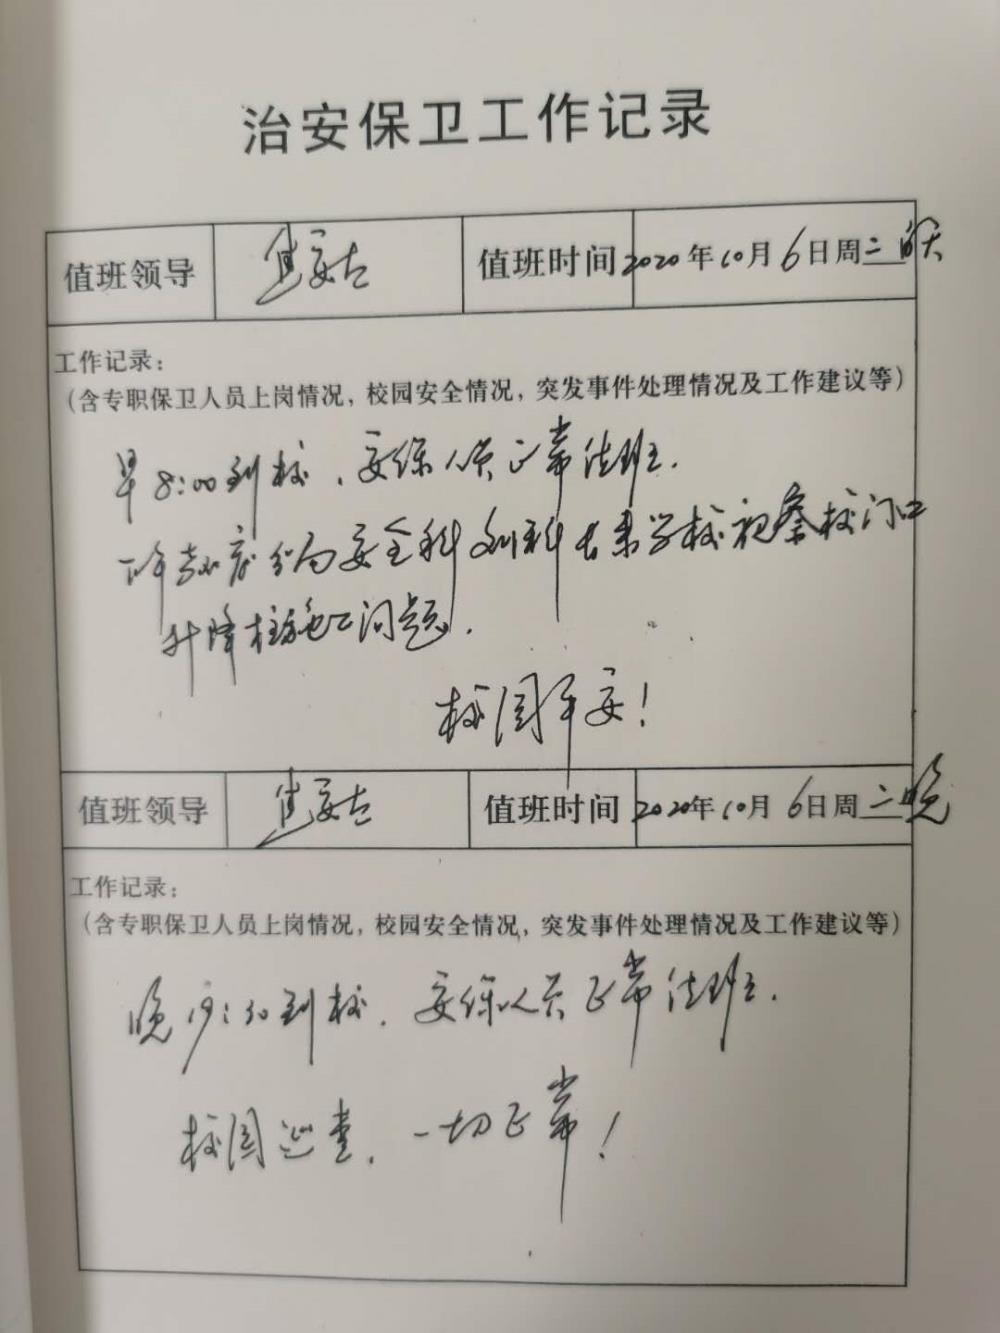 治安保卫工作记录
值班领导 值班时间 2020年10月6日周二 白天
工作记录:
(含专职保卫人员上岗情况,校园安全情况,突发事件处理情况及工作建议等)
早8:00到校,安保人员正常值班.
下午 分局安全科刘科长来学校视察校门口
升降柱施工问题.
校园平安!
值班领导 值班时间 2020年10月6日周二 晚
工作记录:
(含专职保卫人员上岗情况,校园安全情况,突发事件处理情况及工作建议等)
晚19:30到校,安保人员正常值班.
校园巡查,一切正常!